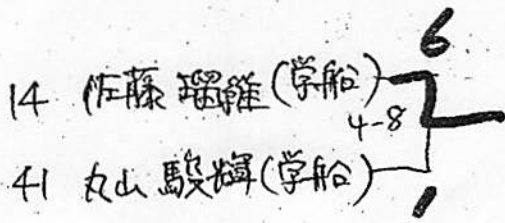 6
14 佐藤瑠維(学船)
4-8
41 丸山駿輝(学船)
1